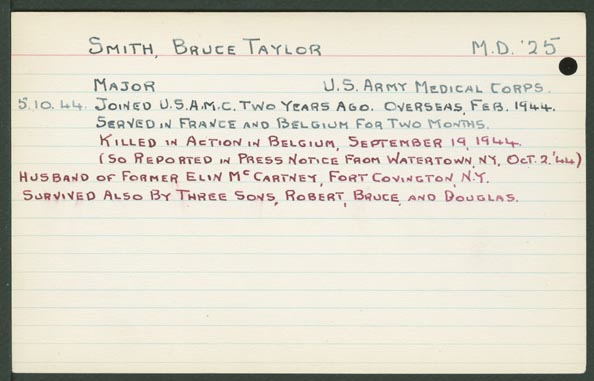 SMITH, BRUCE TAYLOR M.D. '25
MAJOR U.S. ARMY MEDICAL CORPS.
5.10.44. JOINED U.S.A.M.C. TWO YEARS AGO. OVERSEAS, FEB. 1944.
SERVED IN FRANCE AND BELGIUM FOR TWO MONTHS.
KILLED IN ACTION IN BELGIUM, SEPTEMBER 19, 1944.
(SO REPORTED IN PRESS NOTICE FROM WATERTOWN, NY, OCT. 2. '44)
HUSBAND OF FORMER ELIN MCCARTNEY, FORT COVINGTON, N.Y.
SURVIVED ALSO BY THREE SONS, ROBERT, BRUCE, AND DOUGLAS.